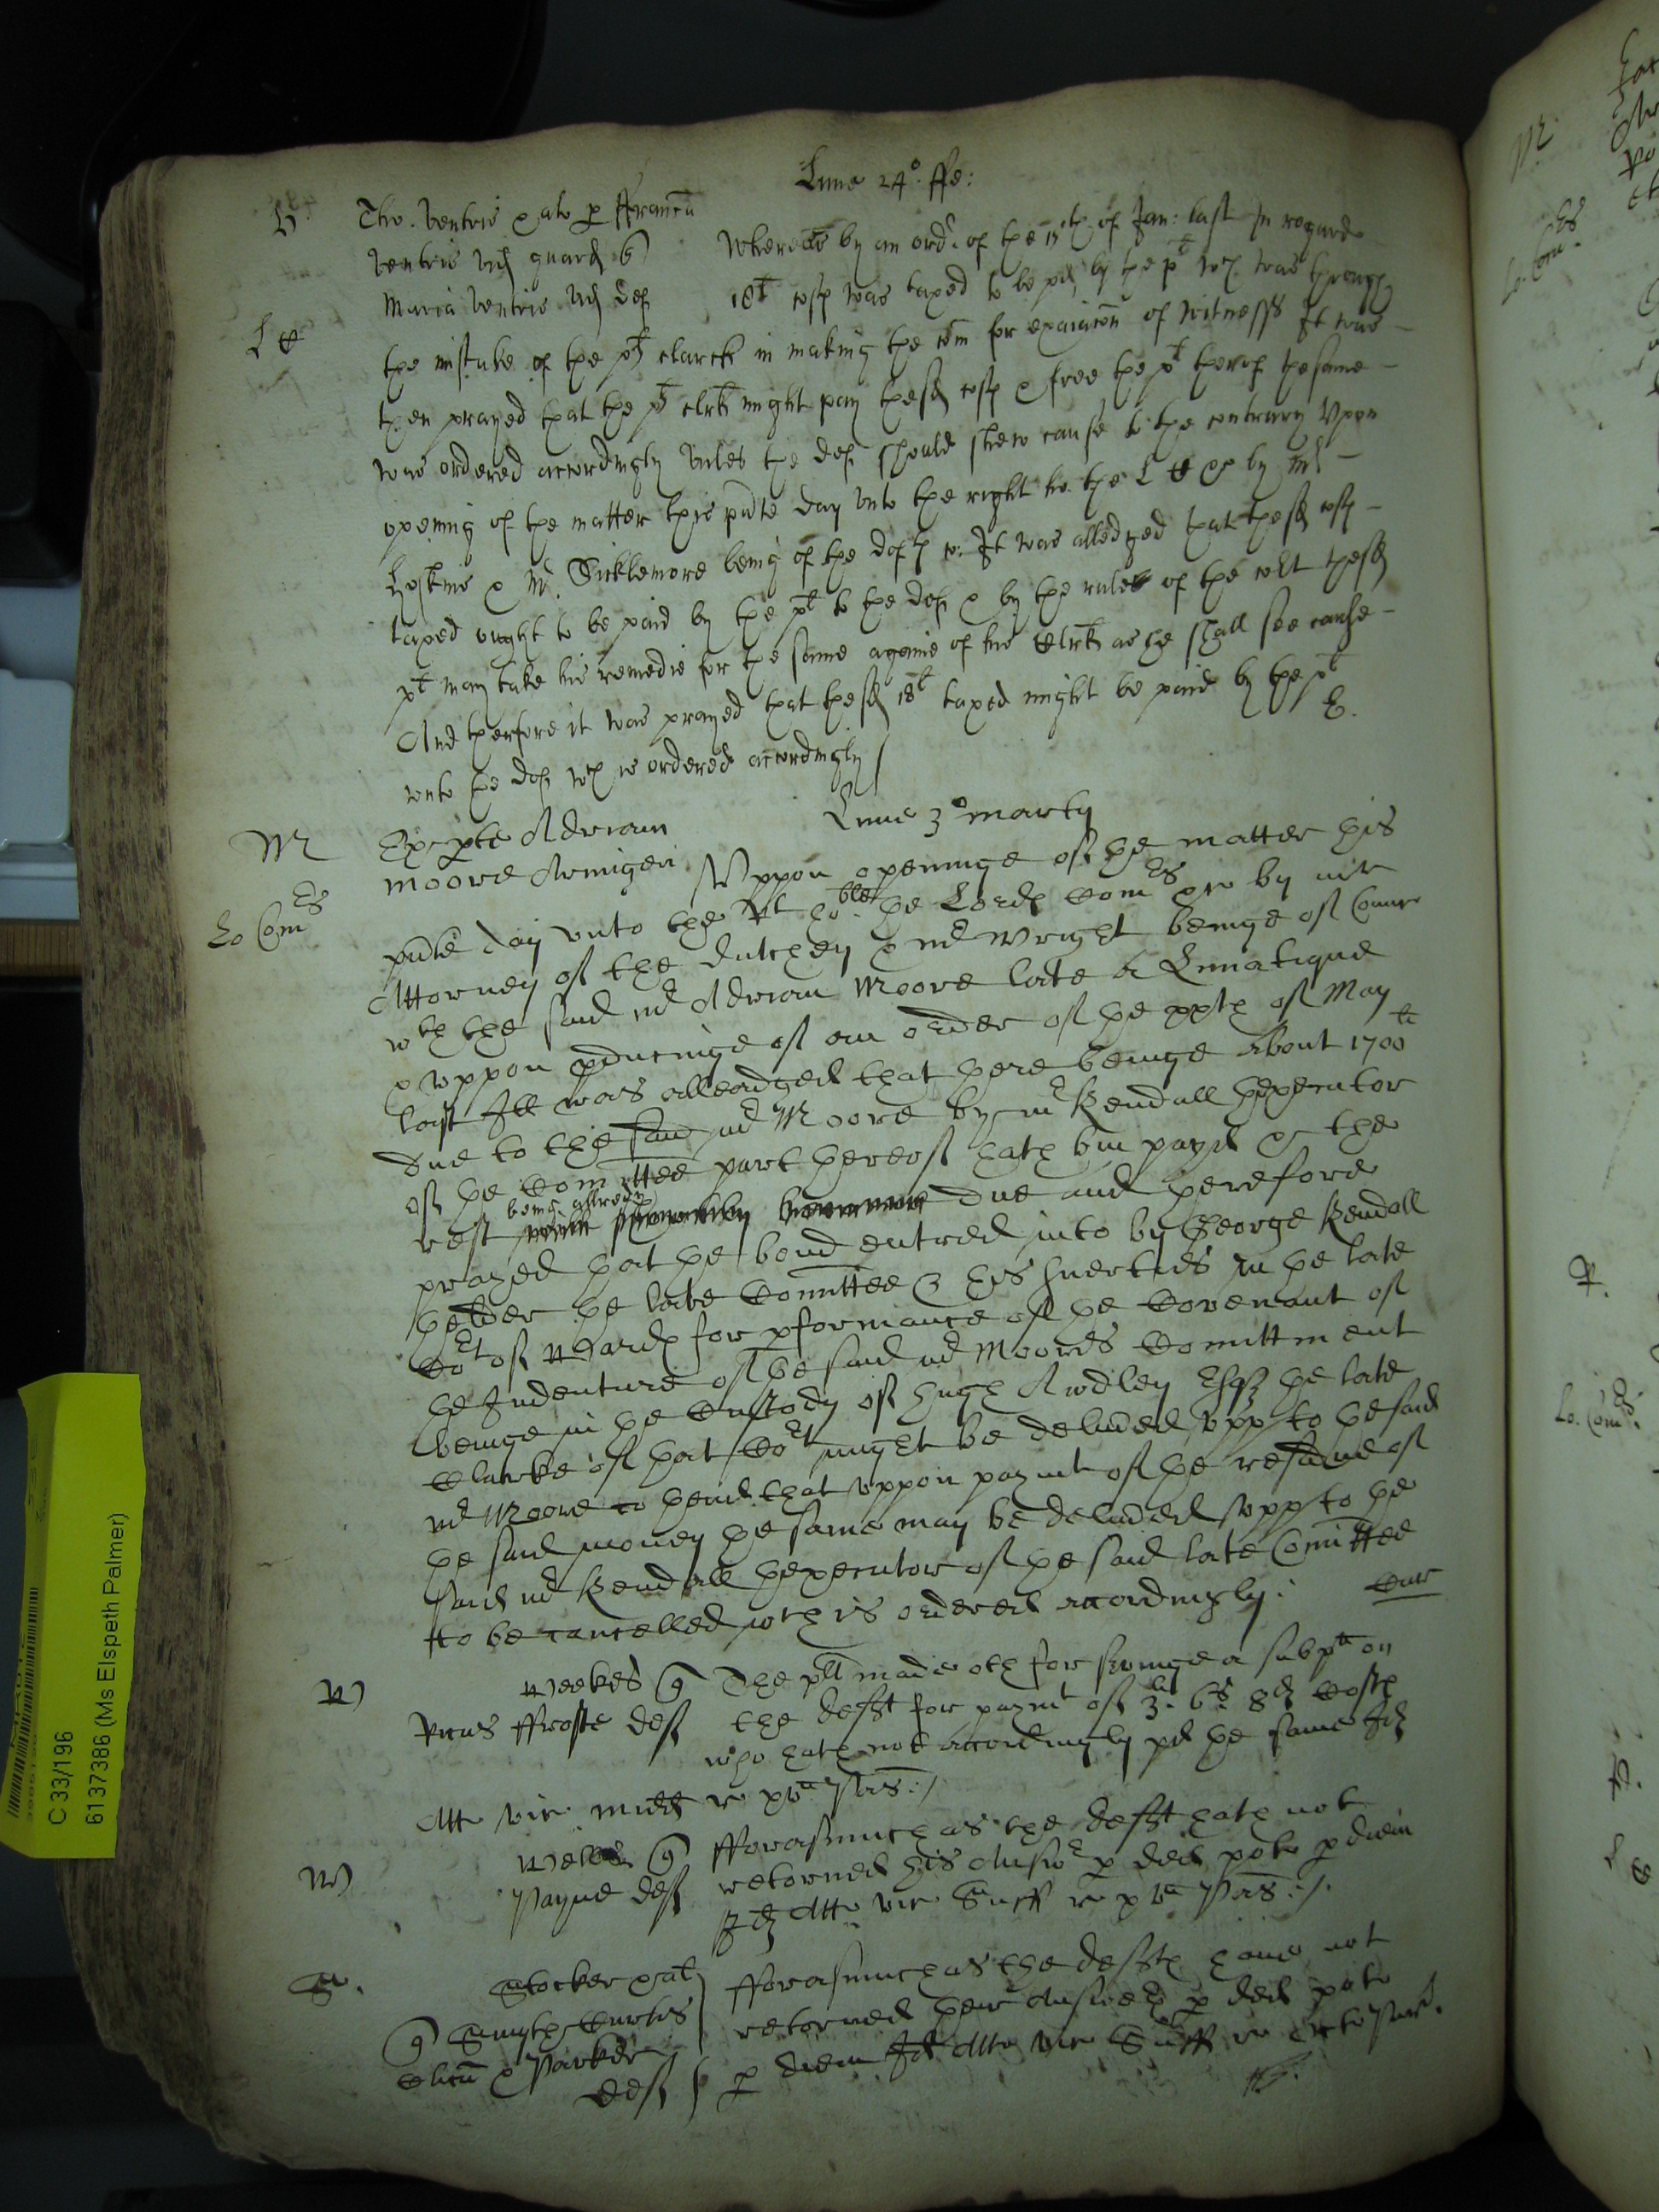 Lune 24° ffe:
V Tho. Ventris & als p ffrancu
Ventris vid guard q
Maria Ventris vid def
Whereas by an ord.r of the 13th of Jan: last In regard
18s costs was taxed to be pd by the pt wch was through
L C
the mistake of the pts clarck in making the com for exaiacon of witnesses It was
then prayed that the pts clrk might pay the sd costs & free the pt therof the same
was ordered accordingly unles the def should shew cause to the contrary Upon
opening of the matter this pnte day unto the right ho. the L C &c by Mr
Hoskins & Mr. Sicklemore being of the defts co. It was alledged that the sd costs
taxed ought to be paid by the pt to the def & by the rules of the coLt the sd
pt may take his remedie for the same againe of his Clrk as he shall see cause
And therfore it was prayed that the sd 18s taxed might be paid by the pt
unto the def wch is ordered accordingly E.
Lune 3° marty
M Ex pte Adrian
Moore Armigeri
Lo Comrs
Vppon openinge of the matter this
pnte day vnto the Rt hoble the Lords Comrs &c by mr
Attorney of the Dutchey & mr Wright beinge of Counc
wth the said mr Adrian Moore late a Lunatique
& vppon pducinge of an order of the xxth of May
last It was alleadged that there beinge about 1700li
due to the said mr Moore by mr Kendall thexecutor
of the Comittee part thereof hath bin payd & the
rest being allready due and therefore
prayed that the bond entred into by George Kendall
thelder the late Comittee & his suerties in the late
Cort of Wards for pformance of the Covenant of
the Indenture of the said mr Moores Comittment
beinge in the Custody of Hugh Awdley Esqr the late
Clarke of that Cort might be deliued vpp to the said
mr Moore to thend that vppon paymt of the residue of
the said money the same may be deliuded vpp to the
said mr Kendall thexecutor of the said late Comittee
to be cancelled wch is ordered accordingly.
W Weekes q
ffroste def
The plt made oth for servinge a subpa on
the deft for paymt of 3li. 6s. 8d Costs
who hath not accordingly pd the same Id
Att vic midd r xva Pas:/
W q
Payne def
fforasmuch as the deft hath not
retorned his Answr p ded pot p diem
Id Att vic Suff r xva Pas:/.
S. Stocker & al
q Smyth Curtis
& Parker
def
fforasmuch as the defts haue not
retorned their Answers p ded pot
p diem Id Att vic Suff r Pas.